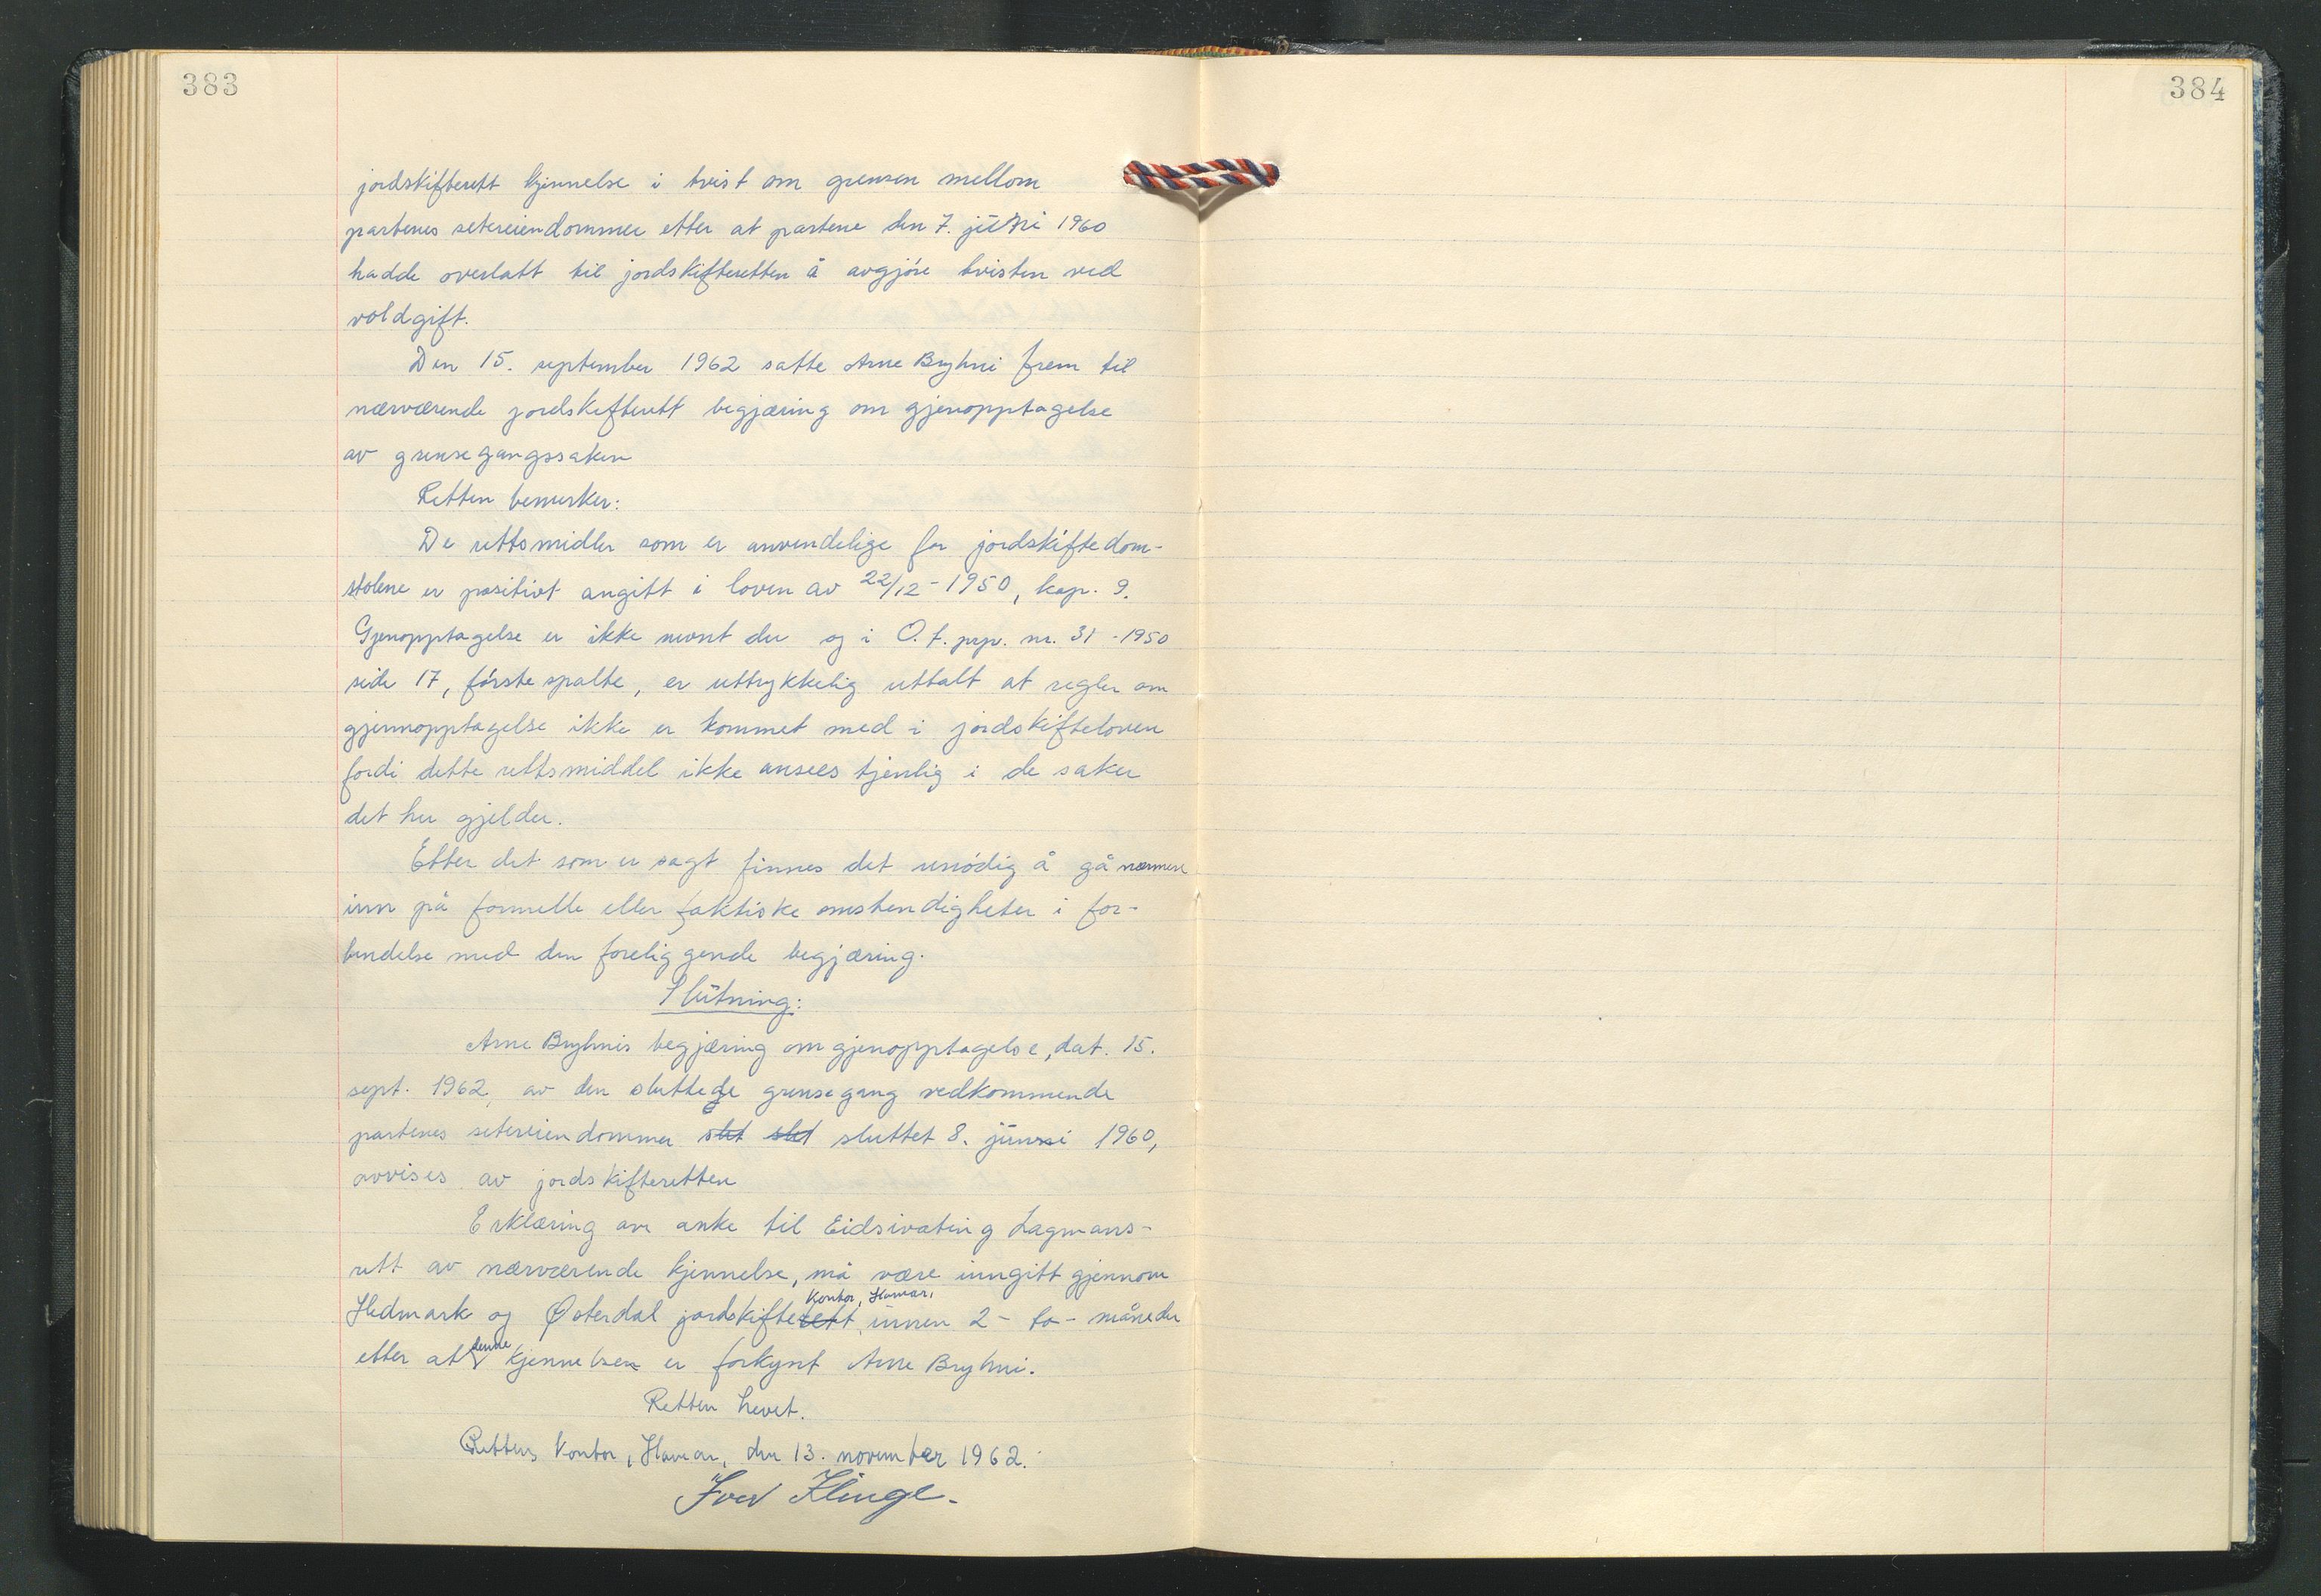 383
384
jordskifterett kjennelse i tvist om grensen mellom
partenes setereiendommer etter at partene den 7. juni 1960
hadde overlatt til jordskifteretten å avgjöre tvisten ved
voldgift.
Den 15. september 1962 satte Arne Bryhni frem til
nærværende jordskifterett begjæring om gjenopptagelse
av grensegangssaken
Retten bemerker:
De rettsmidler som er anvendelige for jordskiftedom-
stolene er positivt angitt i loven av 22/12 - 1950, kap. 9.
Gjenopptagelse er ikke nevnt der og i O. t. prp. nr. 31 - 1950
side 17, förste spalte, er uttrykkelig uttalt at regler om
gjennopptagelse ikke er kommet med i jordskifteloven
fordi dette rettsmiddel ikke ansees tjenlig i de saker
det her gjelder.
Etter det som er sagt finnes det unödig å gå nærmere
inn på formelle eller faktiske omstendigheter i for-
bindelse med den foreliggende begjæring.
Slutning:
Arne Bryhnis begjæring om gjenopptagelse, dat. 15.
sept. 1962, av den sluttede grensegang vedkommende
partenes setereiendommer slet slet sluttet 8. juni 1960,
avvises av jordskifteretten
Erklæring om anke til Eidsivating Lagmans-
rett av nærværende kjennelse, må være inngitt gjennom
Kontor, Hamar,
Hedmark og Østerdal jordskifterett innen 2 - to - måneder
etter at denne kjennelsen er forkynt Arne Bryhni.
Retten hevet.
Rettens kontor, Hamar, den 13. november 1962.
Iver Klinge.